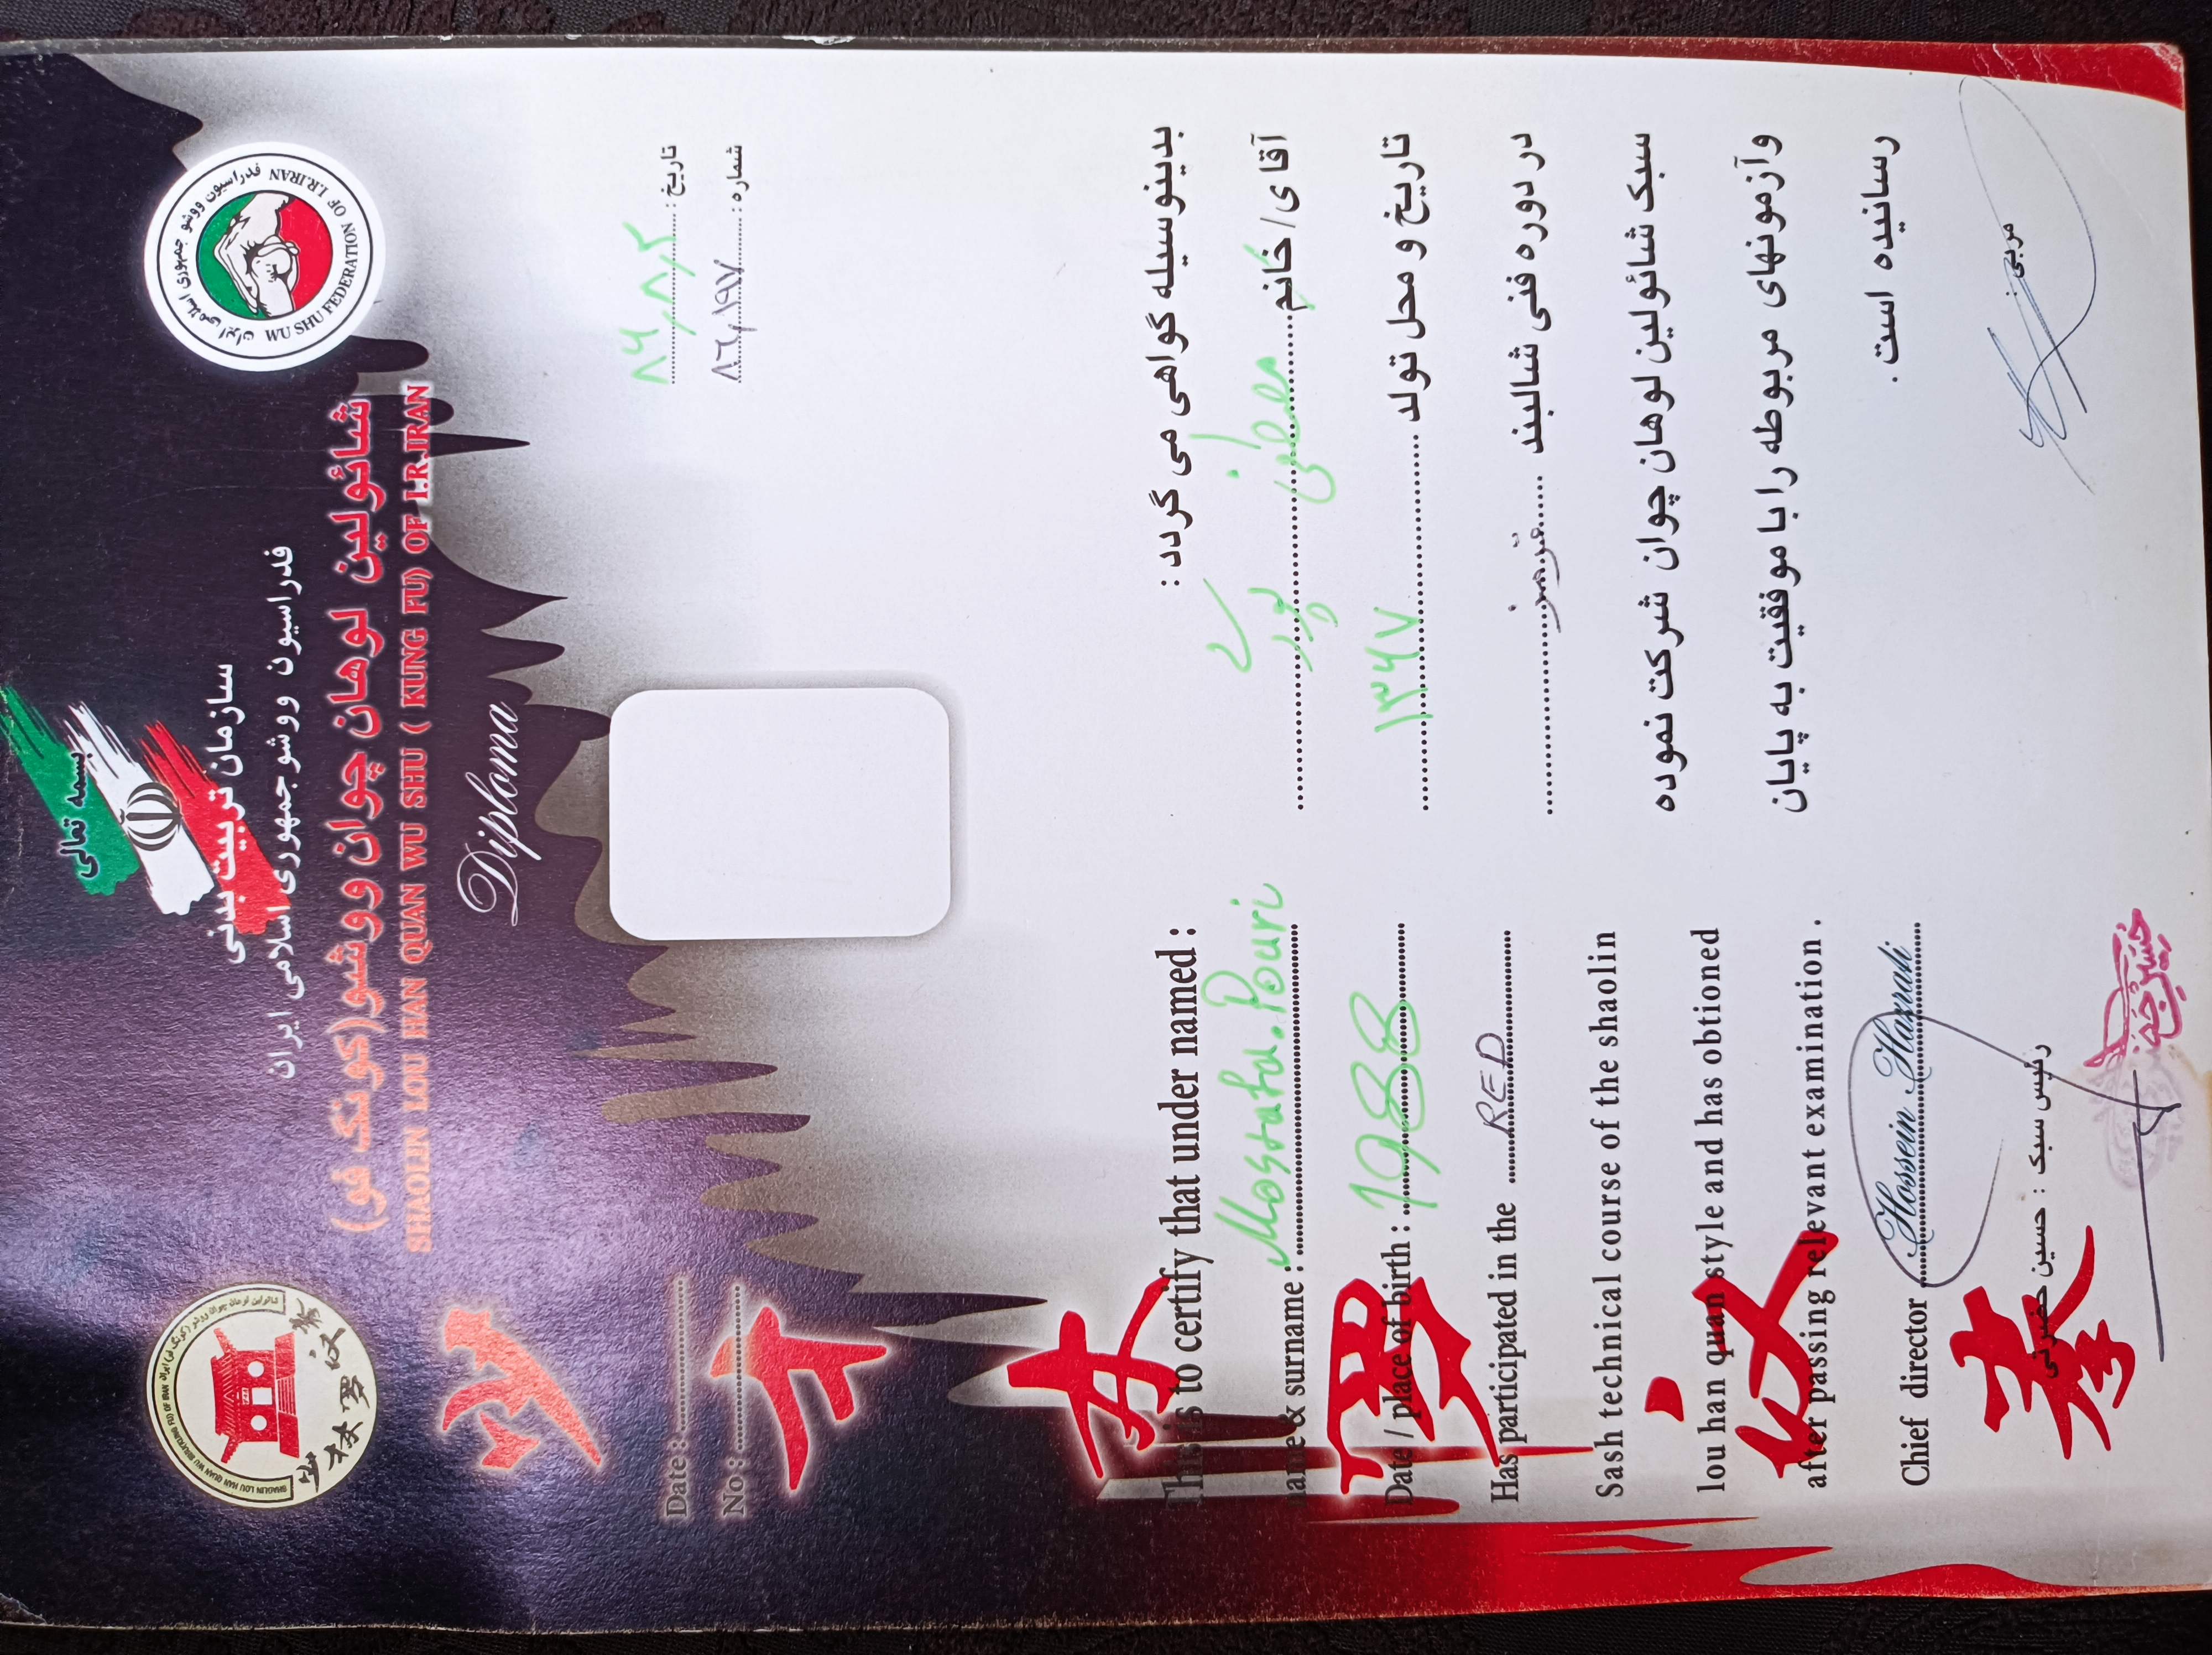 بسمه تعالی
سازمان تربیت بدنی
فدراسیون ووشو جمهوری اسلامی ایران
شائولین لوهان چوان ووشو(کونگ فو)
SHAOLIN LOU HAN QUAN WU SHU ( KUNG FU) OF I.R.IRAN
Diploma
فدراسیون ووشو جمهوری اسلامی ایران
WU SHU FEDERATION OF I.R.IRAN
少林罗汉拳
少林罗汉拳
تاریخ : ۸۶,۸,۲
شماره : ۸۶,۱۹۷
Date :
No :
بدینوسیله گواهی می گردد :
آقای/خانم مصطفی پوری
تاریخ و محل تولد ۱۳۶۷
در دوره فنی شالبند قرمز
سبک شائولین لوهان چوان شرکت نموده
وآزمونهای مربوطه را با موفقیت به پایان
رسانیده است .
مربی:
This is to certify that under named :
name & surname : Mostafa.Pouri
Date / place of birth : 1988
Has participated in the RED
Sash technical course of the shaolin
lou han quan style and has obtioned
after passing relevant examination .
Chief director Hossein Hazrati
رئیس سبک : حسین حضرتی